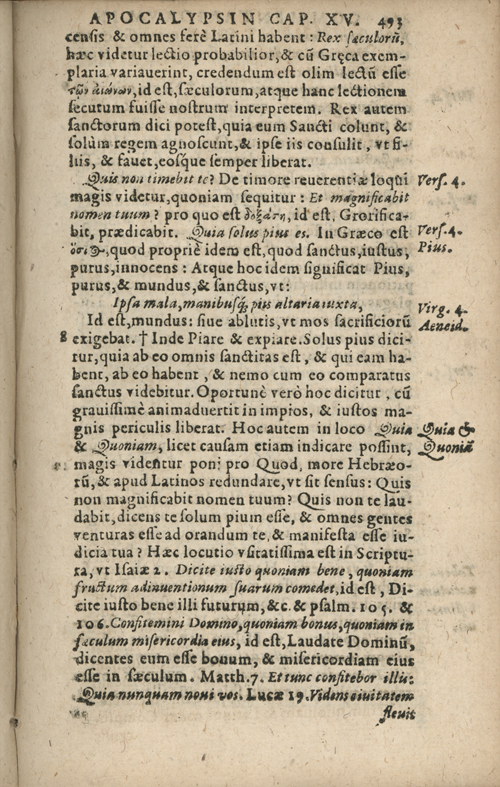 APOCALYPSIN CAP. XV. 493
censis & omnes ferè Latini habent: Rex sæculorũ,
hæc videtur lectio probabilior, & cũ Gręca exem-
plaria variauerint, credendum est olim lectũ esse
τῶν αἰώνων, id est, sæculorum, atque hanc lectionem
secutum fuisse nostrum interpretem. Rex autem
sanctorum dici potest, quia eum Sancti colunt, &
solùm regem agnoscunt, & ipse iis consulit, vt fi-
liis, & fauet, eosque semper liberat.
Quis non timebit te? De timore reuerentiæ loqui Vers. 4.
magis videtur, quoniam sequitur: Et magnificabit
nomen tuum? pro quo est δοξάση, id est, Grorifica-
bit, prædicabit. Quia solus pius es. In Græco est Vers. 4.
ὅσιος, quod propriè idem est, quod sanctus, iustus, Pius.
purus, innocens: Atque hoc idem significat Pius,
purus, & mundus, & sanctus, vt:
Ipsa mala, manibusq́; pius altaria iuxta, Virg. 4.
Id est, mundus: siue ablutis, vt mos sacrificiorũ Aeneid.
8 exigebat. † Inde Piare & expiare. Solus pius dici-
tur, quia ab eo omnis sanctitas est, & qui eam ha-
bent, ab eo habent, & nemo cum eo comparatus
sanctus videbitur. Oportunè verò hoc dicitur, cũ
grauissimè animaduertit in impios, & iustos ma-
gnis periculis liberat. Hoc autem in loco Quia Quia &
& Quoniam, licet causam etiam indicare possint, Quoniã
magis videntur poni pro Quod, more Hebræo-
rũ, & apud Latinos redundare, vt sit sensus: Quis
non magnificabit nomen tuum? Quis non te lau-
dabit, dicens te solum pium esse, & omnes gentes
venturas esse ad orandum te, & manifesta esse iu-
dicia tua? Hæc locutio vsitatissima est in Scriptu-
ra, vt Isaiæ 2. Dicite iusto quoniam bene, quoniam
fructum adinuentionum suarum comedet, id est, Di-
cite iusto bene illi futurum, &c. & psalm. 105. &
106. Confitemini Domino, quoniam bonus, quoniam in
sæculum misericordia eius, id est, Laudate Dominũ,
dicentes eum esse bonum, & misericordiam eius
esse in sæculum. Matth. 7. Et tunc confitebor illis:
Quia nunquam noui vos. Lucæ 19. Videns ciuitatem
fleuit